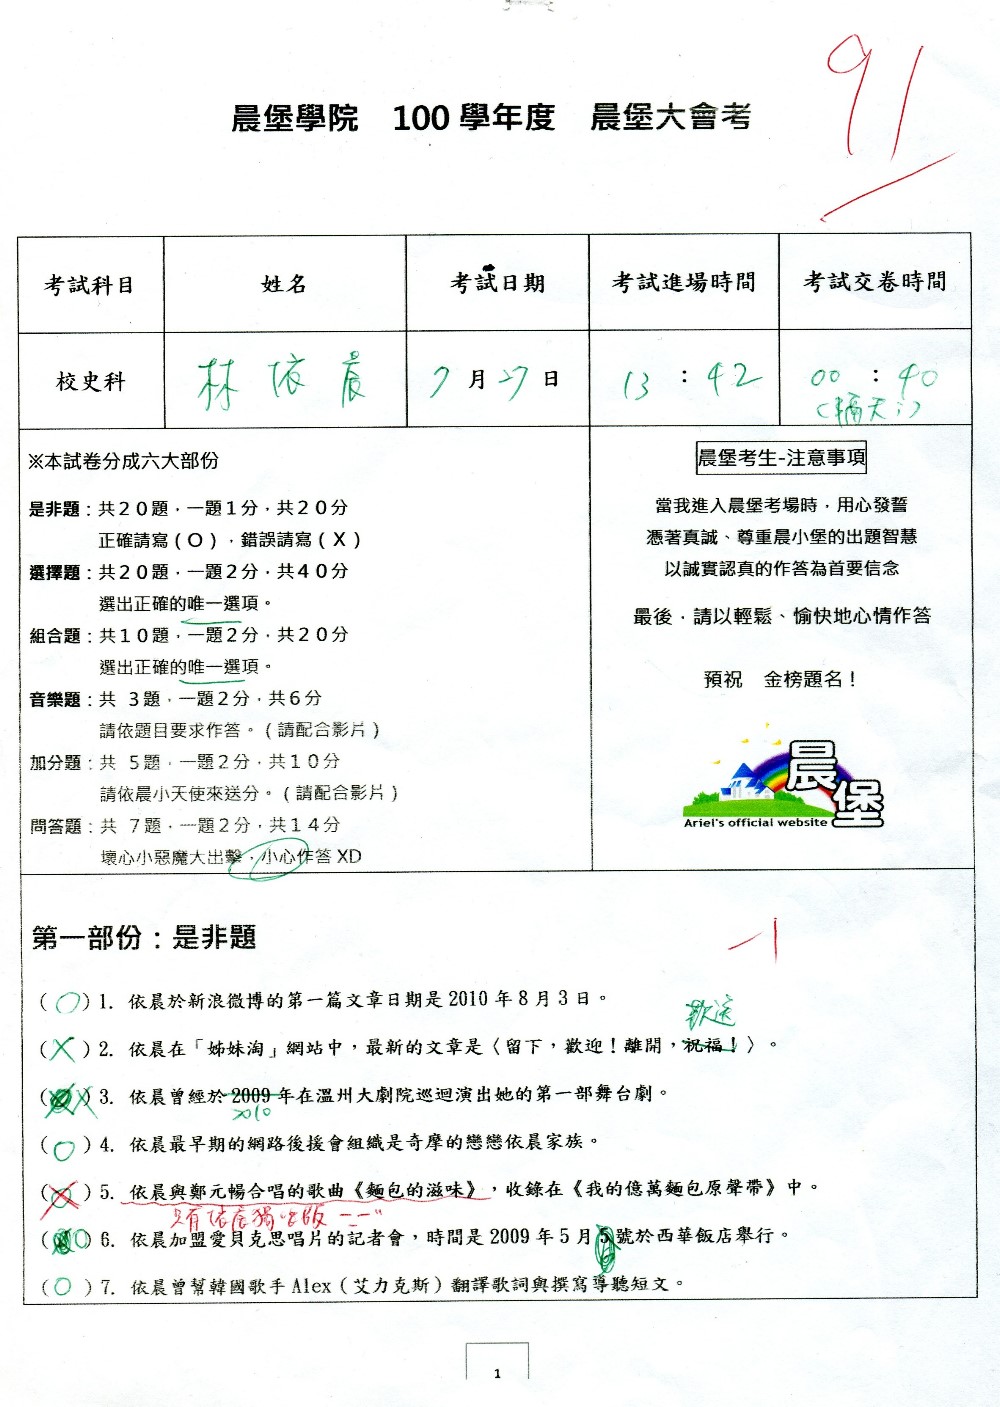 91
晨堡學院 100 學年度 晨堡大會考
考試科目 姓名 考試日期 考試進場時間 考試交卷時間
校史科 林依晨 7 月 27 日 13 : 42 00 : 40
(隔天;)
※本試卷分成六大部份
是非題：共20題，一題1分，共20分
正確請寫(O)，錯誤請寫(X)
選擇題：共20題，一題2分，共40分
選出正確的唯一選項。
組合題：共10題，一題2分，共20分
選出正確的唯一選項。
音樂題：共 3題，一題2分，共6分
請依題目要求作答。(請配合影片)
加分題：共 5題，一題2分，共10分
請依晨小天使來送分。(請配合影片)
問答題：共 7題，一題2分，共14分
壞心小惡魔大出擊，小心作答 XD
晨堡考生-注意事項
當我進入晨堡考場時，用心發誓
憑著真誠、尊重晨小堡的出題智慧
以誠實認真的作答為首要信念
最後，請以輕鬆、愉快地心情作答
預祝 金榜題名！
晨堡
Ariel's official website
第一部份：是非題
-1
(O) 1. 依晨於新浪微博的第一篇文章日期是 2010 年 8 月 3 日。
歡送
(X) 2. 依晨在「姊妹淘」網站中，最新的文章是〈留下，歡迎！離開，祝福！〉。
(X) 3. 依晨曾經於 2009 年在溫州大劇院巡迴演出她的第一部舞台劇。
2010
(O) 4. 依晨最早期的網路後援會組織是奇摩的戀戀依晨家族。
(O) 5. 依晨與鄭元暢合唱的歌曲《麵包的滋味》，收錄在《我的億萬麵包原聲帶》中。
只有依晨獨唱版 -_-"
(O) 6. 依晨加盟愛貝克思唱片的記者會，時間是 2009 年 5 月 5 號於西華飯店舉行。
(O) 7. 依晨曾幫韓國歌手 Alex（艾力克斯）翻譯歌詞與撰寫導聽短文。
1